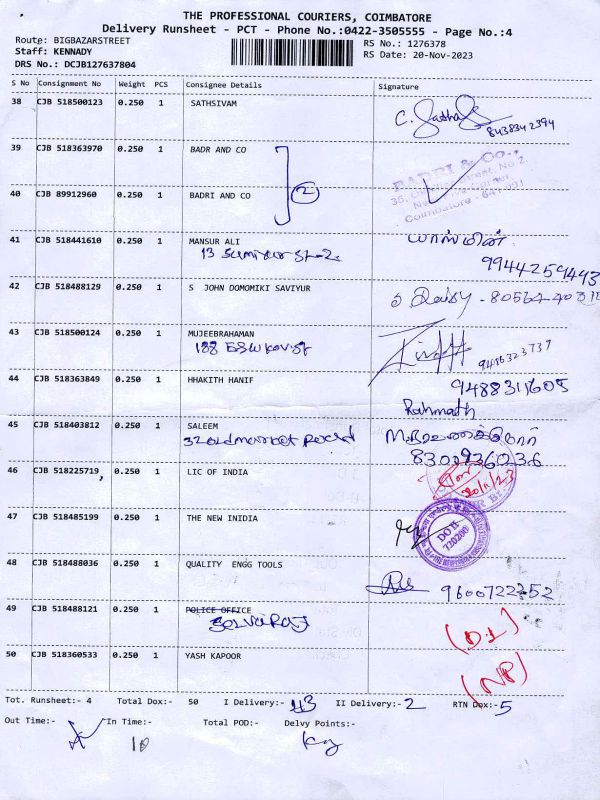 THE PROFESSIONAL COURIERS, COIMBATORE
Delivery Runsheet - PCT - Phone No.:0422-3505555 - Page No.:4
Route: BIGBAZARSTREET
Staff: KENNADY
DRS No.: DCJB127637804
RS No.: 1276378
RS Date: 20-Nov-2023
S No Consignment No Weight PCS Consignee Details Signature
38 CJB 518500123 0.250 1 SATHSIVAM
8438342394
39 CJB 518363970 0.250 1 BADR AND CO
BADRI & Co.,
40 CJB 89912960 0.250 1 BADRI AND CO 2
Coimbatore - 641 001
41 CJB 518441610 0.250 1 MANSUR ALI யாஸ்மின்
13
9944259493
42 CJB 518488129 0.250 1 S JOHN DOMOMIKI SAVIYUR
43 CJB 518500124 0.250 1 MUJEEBRAHAMAN
188
9486323737
44 CJB 518363849 0.250 1 HHAKITH HANIF 9488311605
Rahmath
45 CJB 518403812 0.250 1 SALEEM
32 oldmarket Road
8300936036
46 CJB 518225719 0.250 1 LIC OF INDIA
20/11/23
47 CJB 518485199 0.250 1 THE NEW INIDIA
DO II
720200
48 CJB 518488036 0.250 1 QUALITY ENGG TOOLS
9600722252
49 CJB 518488121 0.250 1 POLICE OFFICE
SELVARAJ
(D.L)
50 CJB 518360533 0.250 1 YASH KAPOOR
(NP)
Tot. Runsheet:- 4 Total Dox:- 50 I Delivery:- 43 II Delivery:- 2 RTN Dox:- 5
Out Time:- In Time:- Total POD:- Delvy Points:-
10